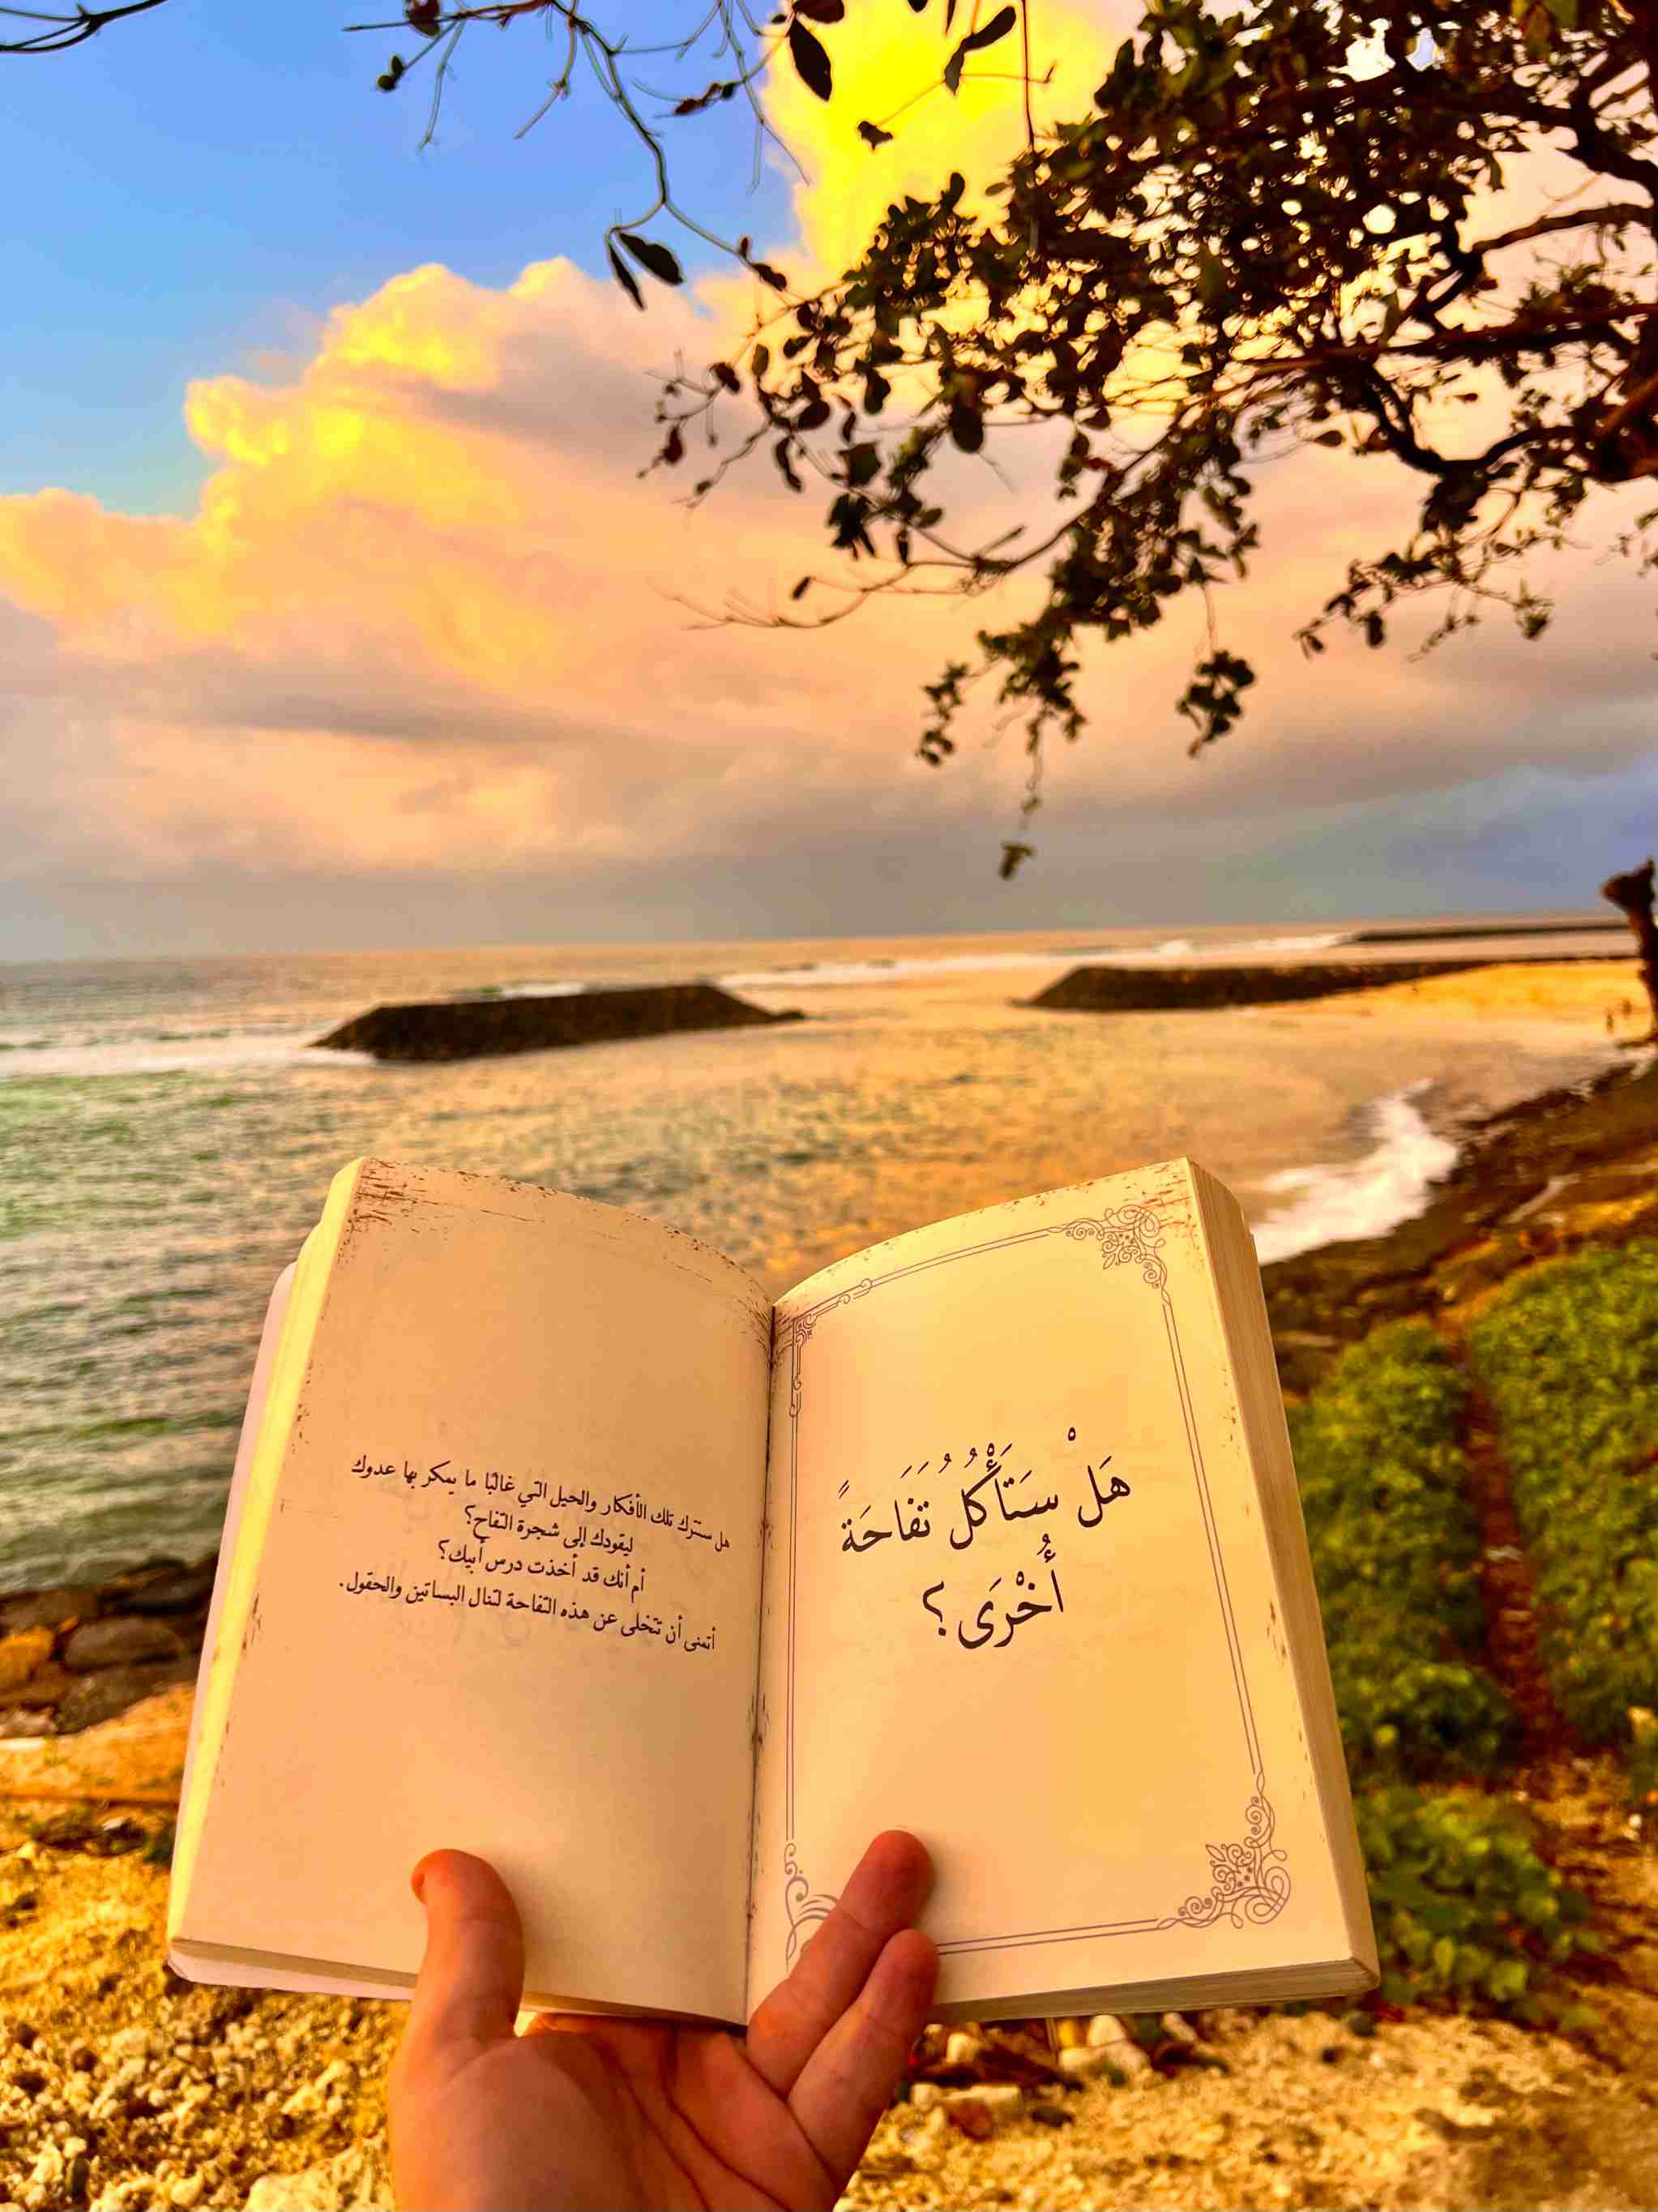 هَلْ سَتَأْكُلُ تُفَاحَةً
أُخْرَى؟
هل ستترك تلك الأفكار والحيل التي غالبًا ما يمكر بها عدوك
ليقودك إلى شجرة التفاح؟
أم أنك قد أخذت درس أبيك؟
أتمنى أن تتخلى عن هذه التفاحة لتنال البساتين والحقول.